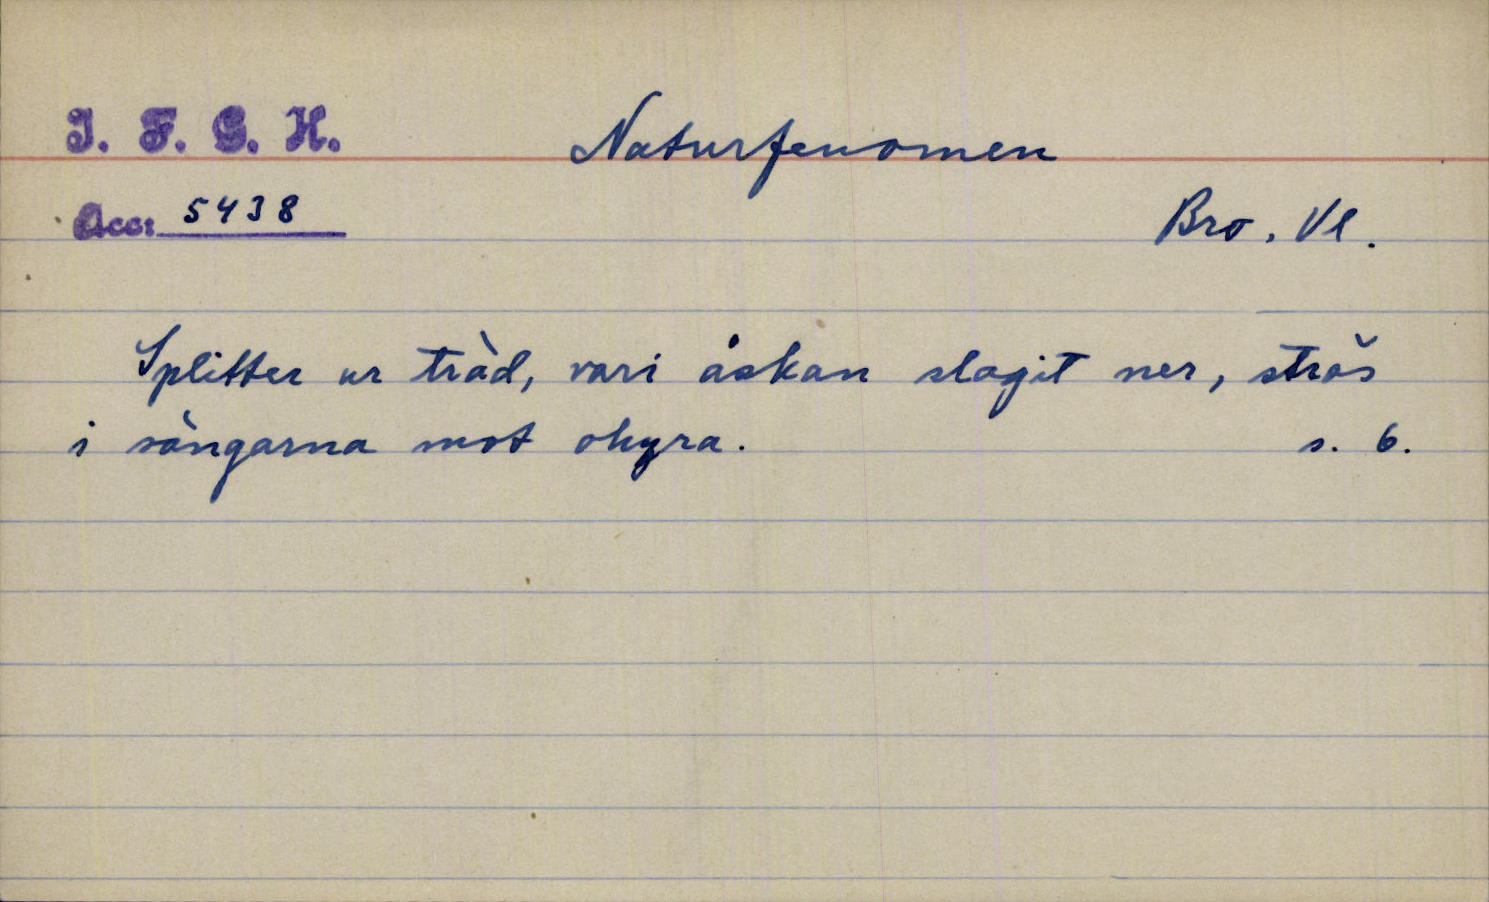 I. F. G. H.
Naturfenomen
Acc: 5438
Bro, Vl.
Splitter ur träd, vari åskan slagit ner, strös
i sängarna mot ohyra. s. 6.